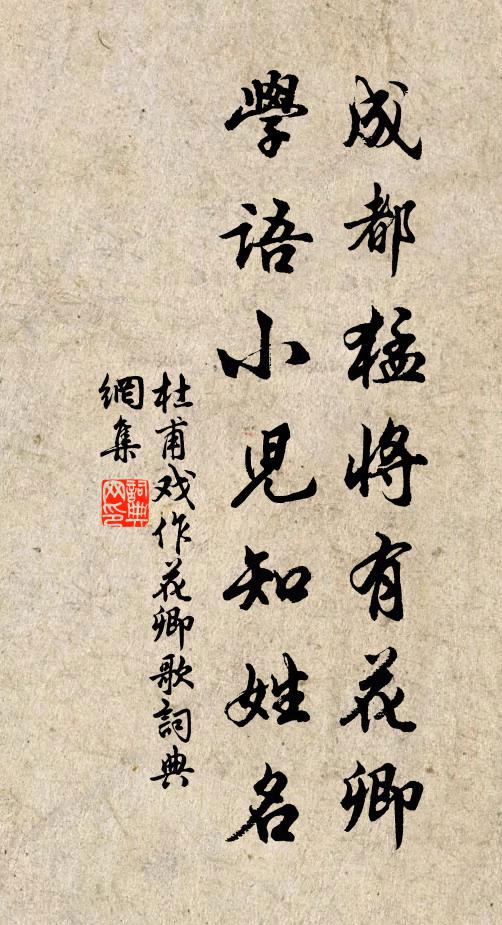 成都猛将有花卿
學語小児知姓名
杜甫戏作花卿歌詞典
網集
詞典
网印